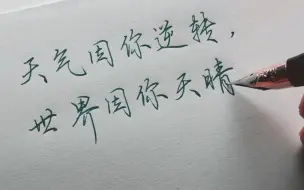 天气因你逆转，
世界因你天晴